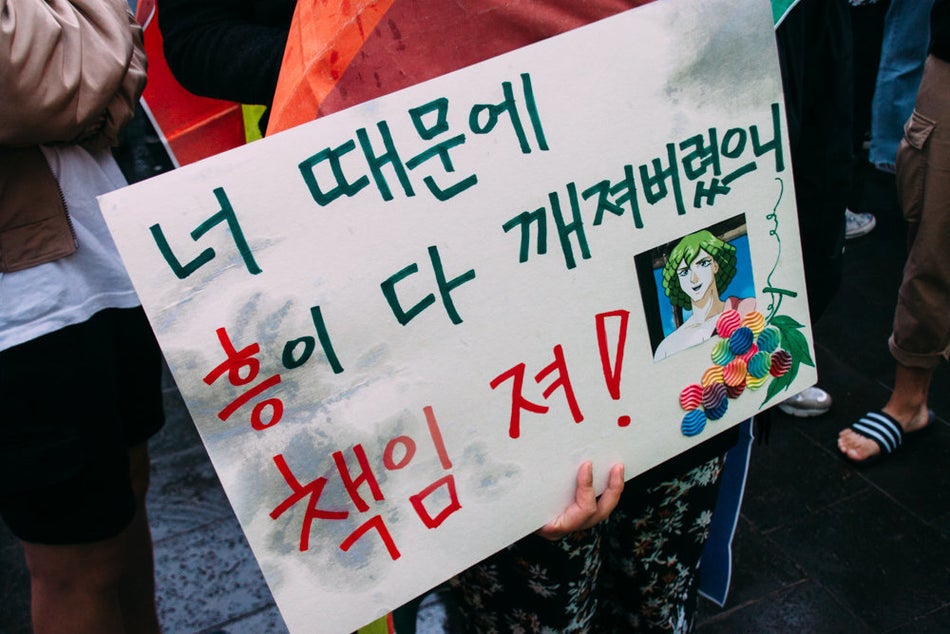 너 때문에
흥이 다 깨져버렸으니
책임 져!